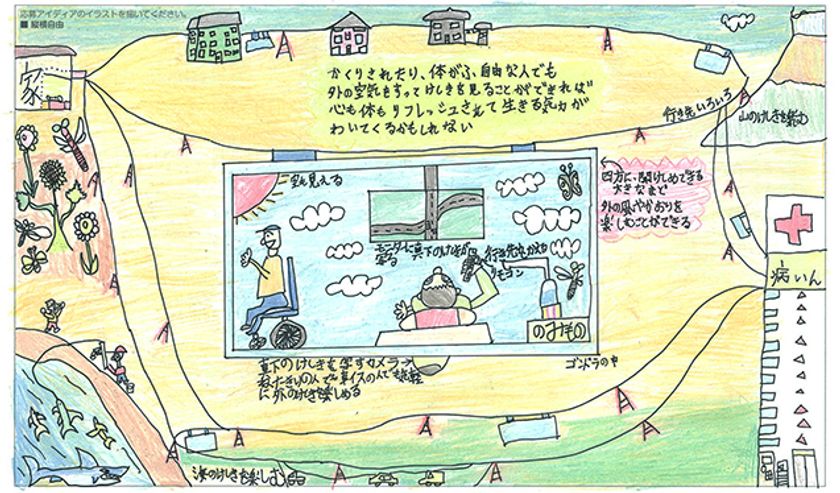 応募アイディアのイラストを描いてください。
■ 縦横自由
家
かくりされたり、体がふ自由な人でも
外の空気をすってけしきを見ることができれば
心も体もリフレッシュされて生きる気力が
わいてくるかもしれない
行き先いろいろ
山のけしきを楽む
空も見える
四方に開けしめできる
大きなまど
外の風やかおりを
楽しむことができる
モニターに真下のけしきが
写る
行き先変えれる
リモコン
のみもの
病いん
真下のけしきを写すカメラ→
ねたきりの人でも車イスの人でも気軽
に外のけしきを楽しめる
ゴンドラの中
海のけしきを楽しむ